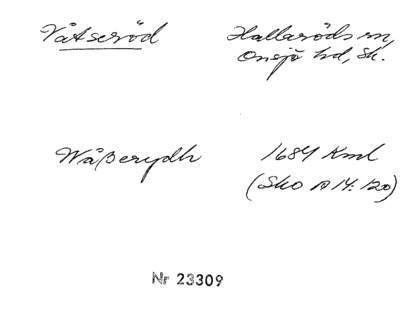 Våtseröd Hallaröds sn,
Onsjö hd, Sk.
Wåßerydh 1684 Kml
(Sko A 14: 120)
Nr 23309